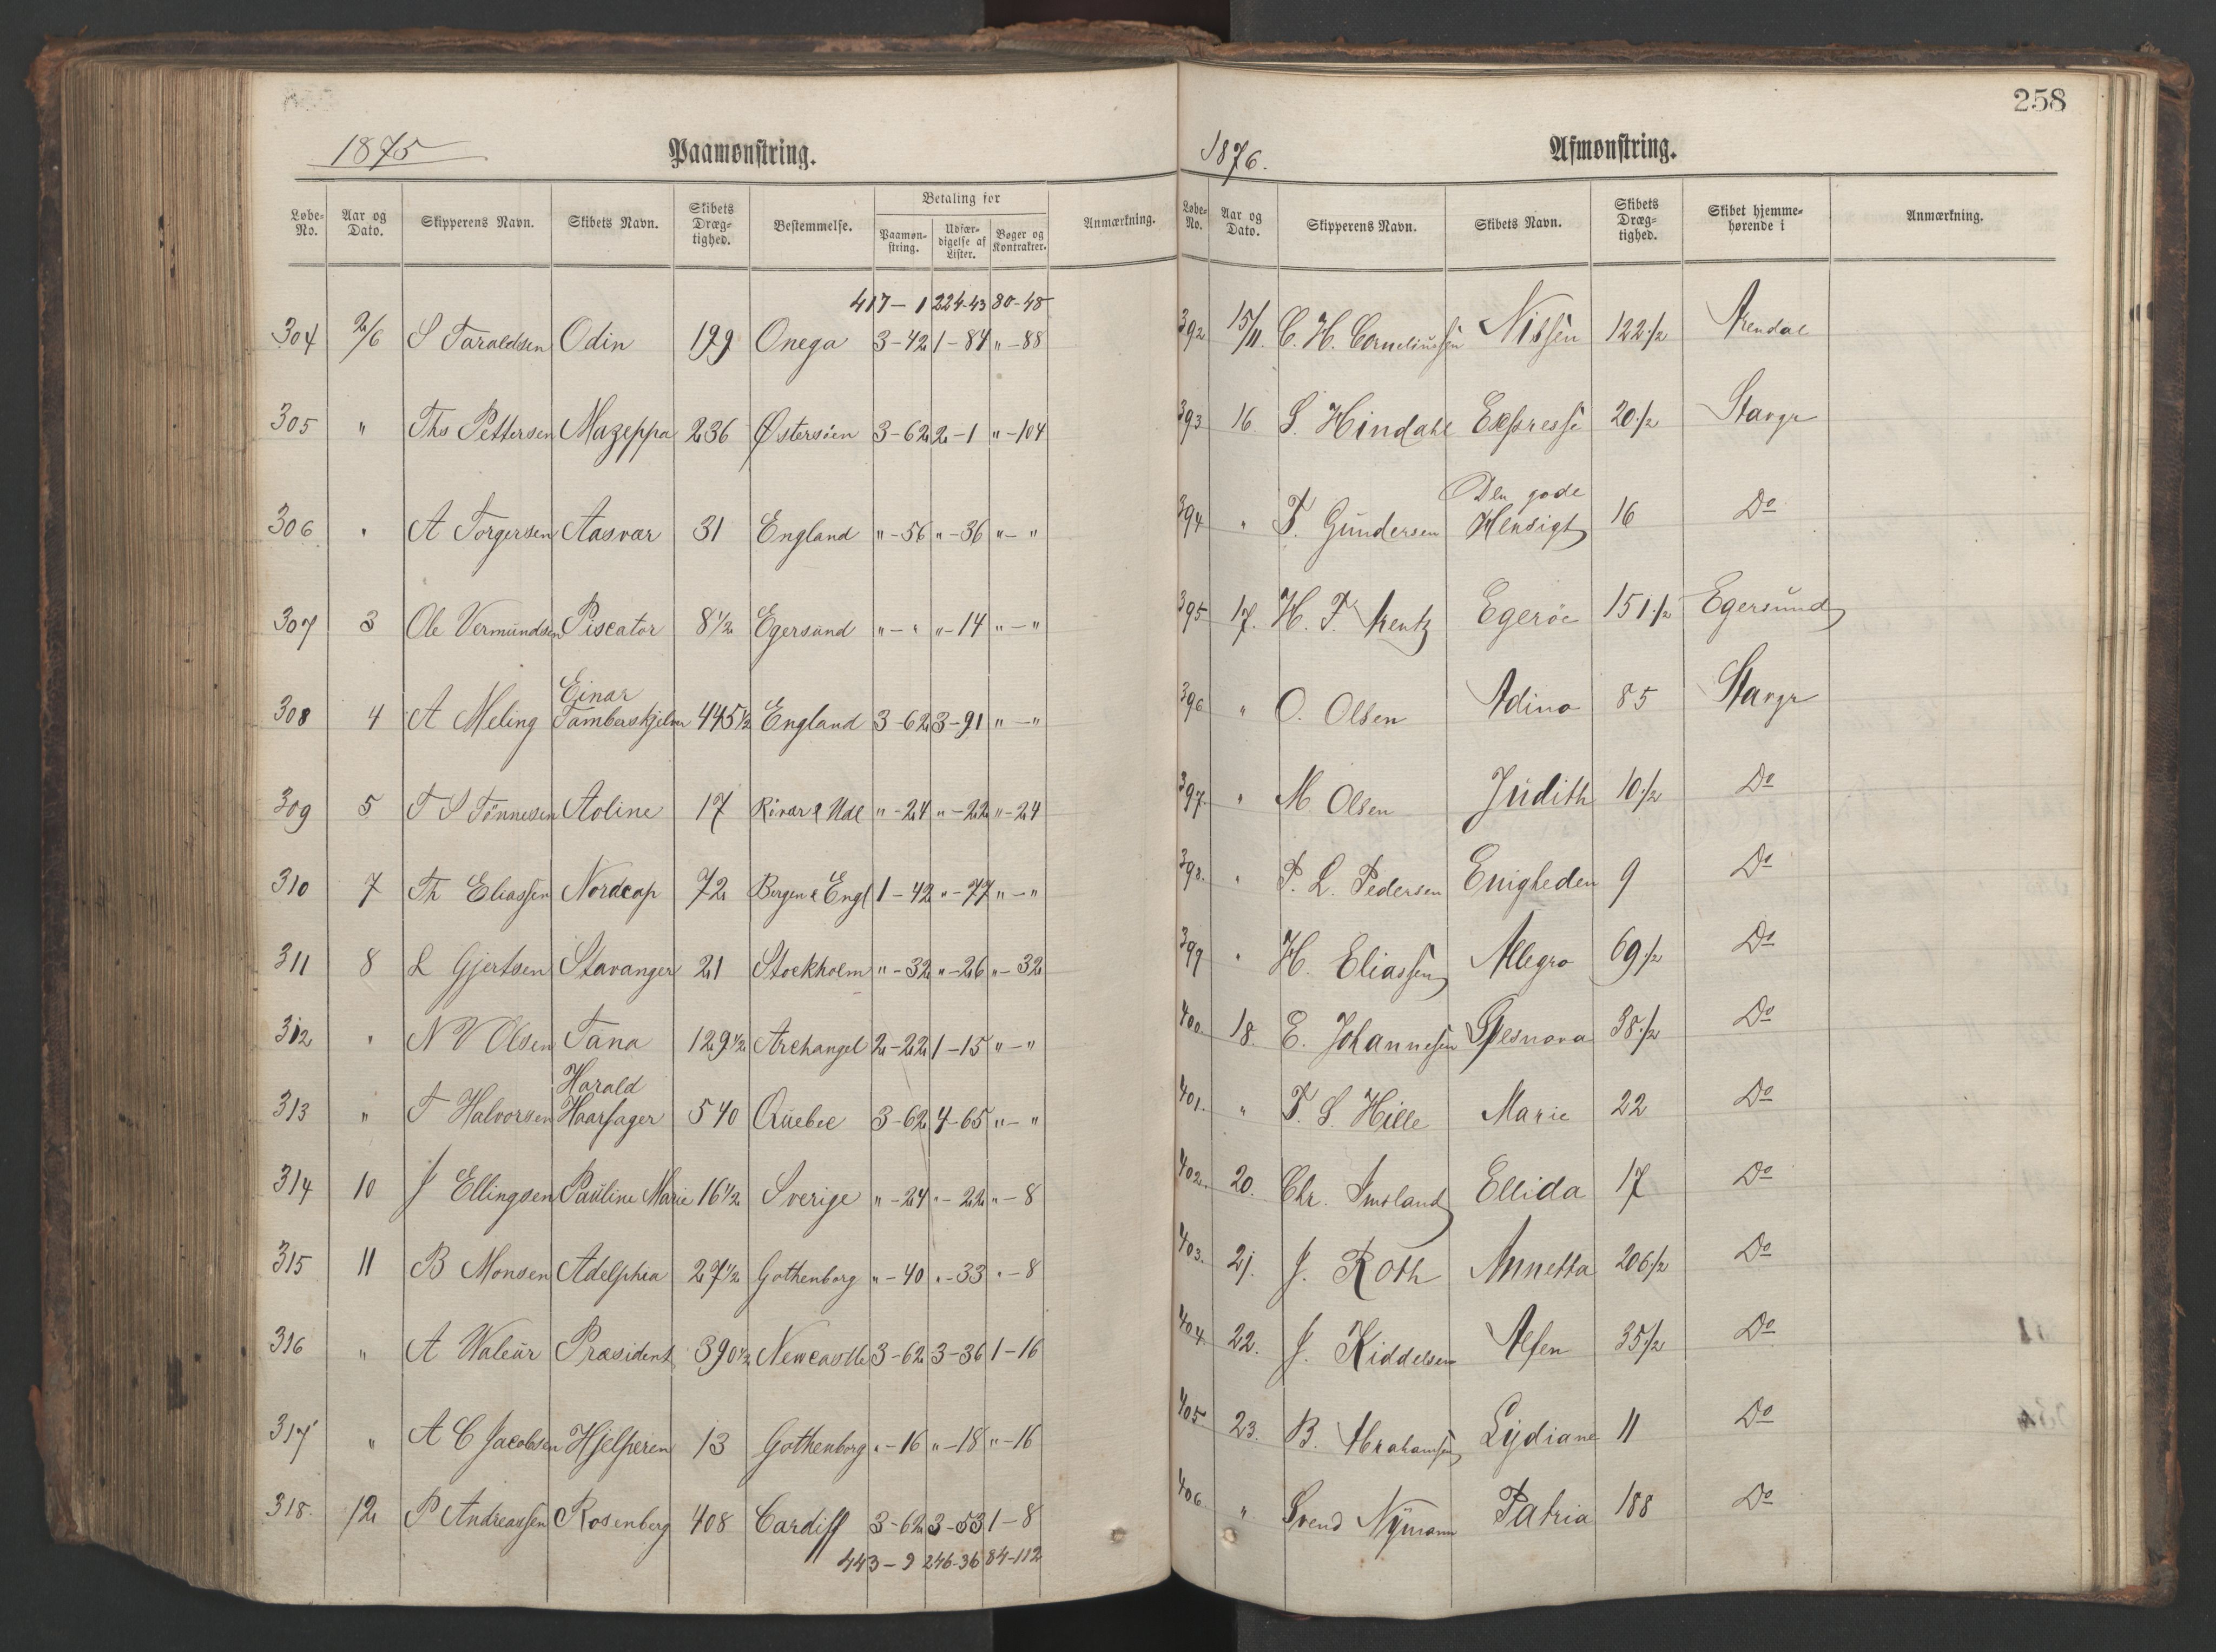 258
1875 Paamønstring.
Løbe-No. Aar og Dato. Skipperens Navn. Skibets Navn. Skibets Dræg-tighed. Bestemmelse. Betaling for Paamøn-string. Udfær-digelse af Lister. Bøger og Kontrakter. Anmærkning.
417-1 224-43 80-48
304 2/6 S Taraldsen Odin 199 Onega 3-42 1-84 "-88
305 " Ths Pettersen Mazeppa 236 Østersöen 3-62 2-1 "-104
306 " A Torgersen Aasvær 31 England "-56 "-36 "-"
307 3 Ole Vermundsen Piscator 8 1/2 Egersund "-" "-14 "-"
Einar
308 4 A Meling Tamberskjelver 445 1/2 England 3-62 3-91 "-"
309 5 T S Tönnesen Aoline 17 Rövær & Udl "-24 "-22 "-24
310 7 Th Eliassen Nordcap 72 Bergen & Engl 1-42 "-77 "-"
311 8 L Gjertsen Stavanger 21 Stockholm "-32 "-26 "-32
312 " N V Olsen Tana 129 1/2 Archangel 2-22 1-15 "-"
Harald
313 " T Halvorsen Haarfager 540 Quebec 3-62 4-65 "-"
314 10 J Ellingsen Pauline Marie 16 1/2 Sverige "-24 "-22 "-8
315 11 B Monsen Adelphia 27 1/2 Gothenborg "-40 "-33 "-8
316 " A Waleur Præsident 390 1/2 Newcastle 3-62 3-36 1-16
317 " A C Jacobsen Hjelperen 13 Gothenborg "-16 "-18 "-16
318. 12 P Andreassen Rosenberg 408 Cardiff 3-62 3-53 1-8
443-9 246-36 84-112
1876. Afmønstring.
Løbe-No. Aar og Dato. Skipperens Navn. Skibets Navn. Skibets Dræg-tighed. Skibet hjemme-hørende i Anmærkning.
392 15/11. C. H. Corneliussen Nissen 122 1/2 Arendal
393 16. S. Hindahl Expresse 20 1/2 Stavgr
Den gode
394 " T. Gundersen Hensigt 16 Do
395 17. H. F. Kentz Egeröe 151 1/2 Egersund
396 " O. Olsen Adina 85 Stavgr
397. " M. Olsen Judith 10 1/2 Do
398. " P. L. Pedersen Enigheden 9 Do
399 " H. Eliassen Allegro 69 1/2 Do
400. 18. E. Johannesen Spesnova 38 1/2 Do
401. " T. S. Hille Marie 22 Do
402. 20. Chr. Imsland Ellida 17 Do
403. 21. J. Roth Annetta 206 1/2 Do
404 22. J. Kiddelsen Alfen 35 1/2 Do
405 23. B. Abrahamsen Lydiane 11 Do
406. " Svend Nÿmann Patria 188 Do